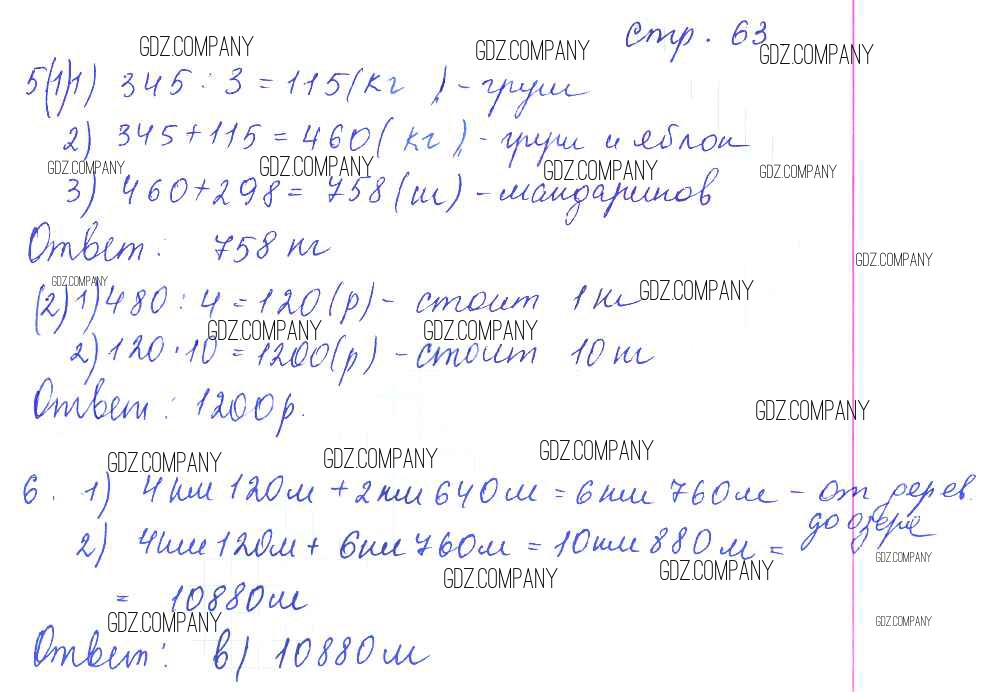 стр. 63
GDZ.COMPANY GDZ.COMPANY GDZ.COMPANY
5(1)1) 345 : 3 = 115 (кг) - груш
2) 345 + 115 = 460 (кг) - груш и яблок
GDZ.COMPANY GDZ.COMPANY GDZ.COMPANY GDZ.COMPANY
3) 460 + 298 = 758 (кг) - мандаринов
Ответ: 758 кг
GDZ.COMPANY GDZ.COMPANY
(2) 1) 480 : 4 = 120 (р) - стоит 1 кг
GDZ.COMPANY
GDZ.COMPANY GDZ.COMPANY
2) 120 · 10 = 1200 (р) - стоит 10 кг
Ответ: 1200 р.
GDZ.COMPANY
GDZ.COMPANY GDZ.COMPANY GDZ.COMPANY
6. 1) 4 км 120 м + 2 км 640 м = 6 км 760 м - от дерев.
до озера
2) 4 км 120 м + 6 км 760 м = 10 км 880 м =
GDZ.COMPANY GDZ.COMPANY GDZ.COMPANY
= 10880 м
GDZ.COMPANY GDZ.COMPANY
Ответ: в) 10880 м